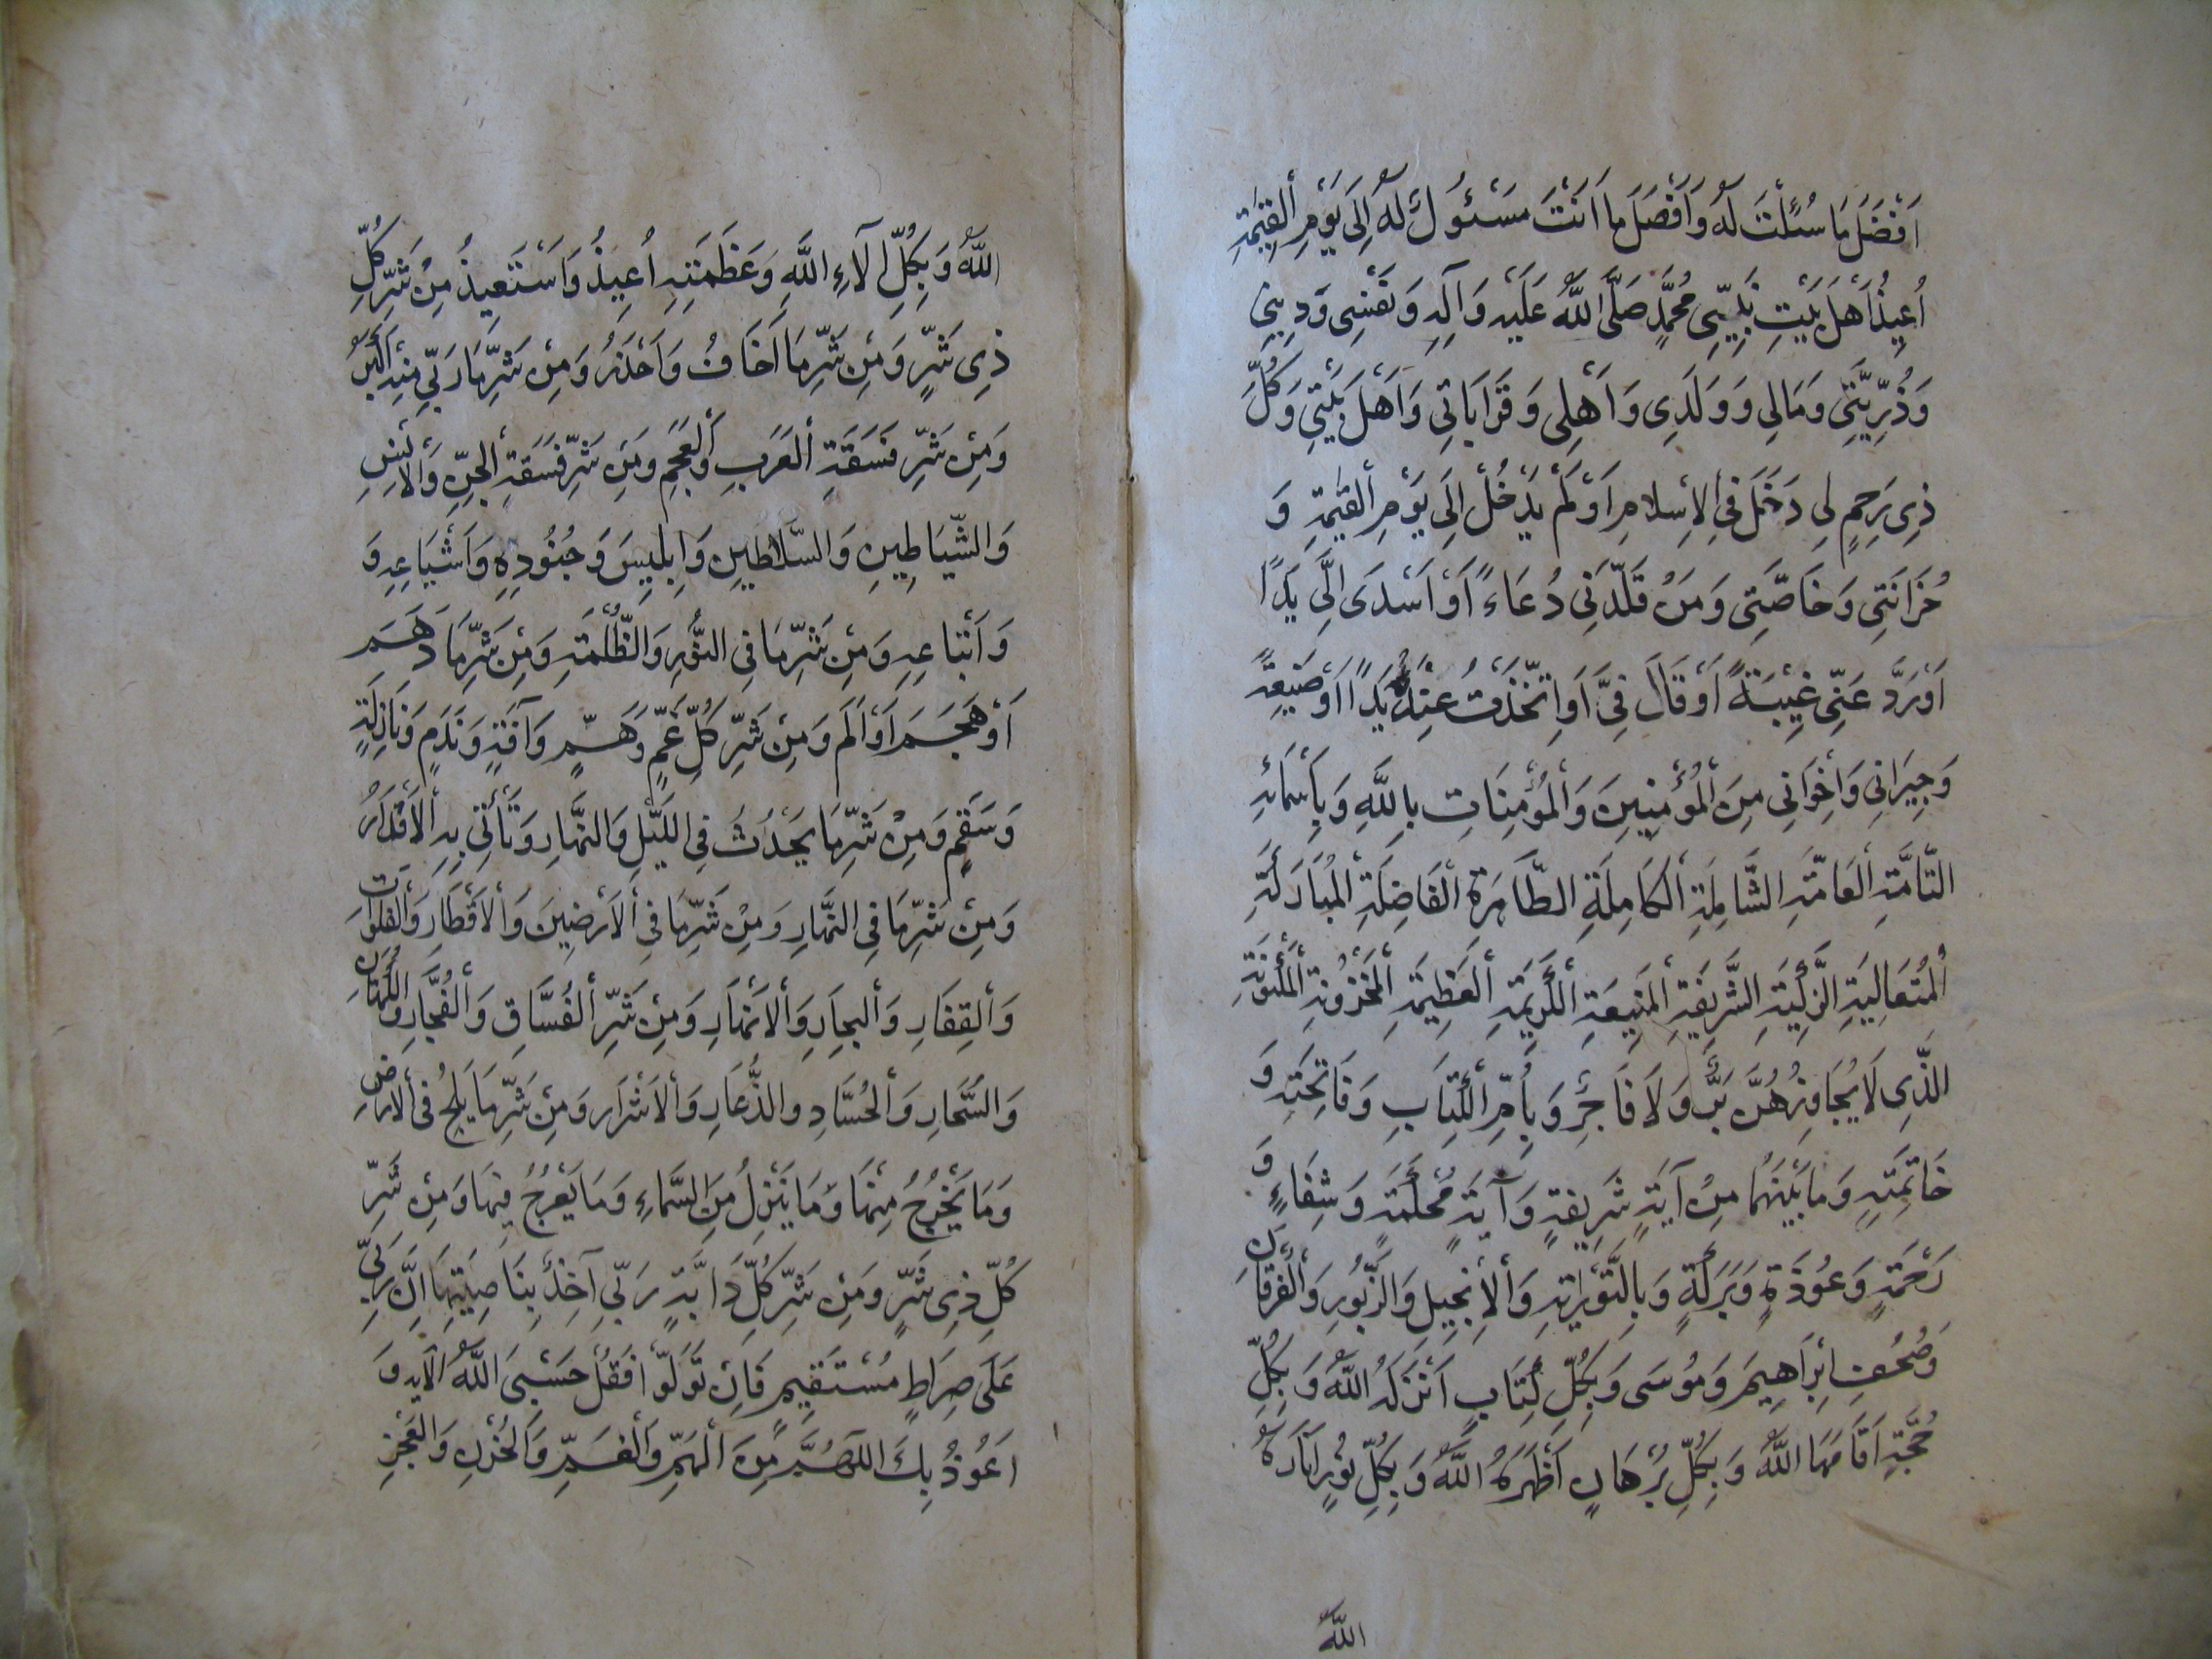 اَفْضَلَ مَا سُئِلْتَ لَهُ وَاَفْضَلَ ما اَنْتَ مَسْئُولٌ لَهُ اِلَى يَوْمِ الْقِيٰمَةِ
اُعِيذُ اَهْلَ بَيْتِ نَبِيّي مُحَمَّدٍ صَلَّى اللَّهُ عَلَيْهِ وَآلِهِ وَنَفْسِى وَدِينِي
وَذُرِّيَّتِي وَمَالِي وَوَلَدِى وَاَهْلِى وَقَرَابَاتِي وَاَهْلَ بَيْتِي وَكُلَّ
ذِى رَحِمٍ لِى دَخَلَ فِي الْاِسْلامِ اَوْ لَمْ يَدْخُلْ اِلَى يَوْمِ الْقِيٰمَةِ وَ
حُزَانَتِي وَخَاصَّتِى وَمَنْ قَلَّدَنِى دُعَاءً اَوْ اَسْدَى اِلَّى يَدًا
اَوْ رَدَّ عَنِّى غِيْبَةً اَوْ قَالَ فِيَّ اَوِ اتَّخَذْتُ عِنْدَهُ يَدًا اَوْ صَنِيعَةً
وَجِيرَانِى وَاِخْوَانِى مِنَ الْمُؤْمِنِينَ وَالْمُؤْمِنَاتِ بِاللَّهِ وَبِاَسْمَائِهِ
التَّامَّةِ الْعَامَّةِ الشَّامِلَةِ الْكَامِلَةِ الطَّاهِرَةِ الْفَاضِلَةِ الْمُبَارَكَةِ
الْمُتَعَالِيَةِ الزَّكِيَّةِ الشَّرِيفَةِ الْمَنِيعَةِ الْكَرِيمَةِ الْعَظِيمَةِ الْمَخْزُونَةِ الْمَكْنُونَةِ
الَّذِى لَا يُجَاوِزُهُنَّ بَرٌّ وَلَا فَاجِرٌ وَبِاُمِّ الْكِتَابِ وَفَاتِحَتِهِ وَ
خَاتِمَتِهِ وَمَا بَيْنَهُمَا مِنْ آيَةٍ شَرِيفَةٍ وَآيَةٍ مُحْكَمَةٍ وَشِفَاءٍ وَ
رَحْمَةٍ وَعُوذَةٍ وَبَرَكَةٍ وَبِالتَّوْرٰيةِ وَالْاِنْجِيلِ وَالزَّبُورِ وَالْفُرْقَانِ
وَصُحُفِ اِبْرَاهِيمَ وَمُوسَى وَبِكُلِّ كِتَابٍ اَنْزَلَهُ اللَّهُ وَبِكُلِّ
حُجَّةٍ اَقَامَهَا اللَّهُ وَبِكُلِّ بُرْهَانٍ اَظْهَرَهُ اللَّهُ وَبِكُلِّ نُورٍ اَنَارَهُ
اللَّهُ
اللَّهُ وَبِكُلِّ آلَاءِ اللَّهِ وَعَظَمَتِهِ اُعِيذُ وَاَسْتَعِيذُ مِنْ شَرِّ كُلِّ
ذِى شَرٍّ وَمِنْ شَرِّ مَا اَخَافُ وَاَحْذَرُ وَمِنْ شَرِّ مَا رَبِّي مِنْهِ اَكْبَرُ
وَمِنْ شَرِّ فَسَقَةِ الْعَرَبِ وَالْعَجَمِ وَمِنْ شَرِّ فَسَقَةِ الْجِنِّ وَالْاِنْسِ
وَالشَّيَاطِينِ وَالسَّلَاطِينِ وَاِبْلِيسَ وَجُنُودِهِ وَاَشْيَاعِهِ وَ
وَاَتْبَاعِهِ وَمِنْ شَرِّ مَا فِى النُّورِ وَالظُّلْمَةِ وَمِنْ شَرِّ مَا دَهَمَ
اَوْ هَجَمَ اَوْ اَلَمَ وَمِنْ شَرِّ كُلِّ غَمٍّ وَهَمٍّ وَآفَةٍ وَنَدَمٍ وَنَازِلَةٍ
وَسَقَمٍ وَمِنْ شَرِّ مَا يَحْدُثُ فِى اللَيْلِ وَالنَّهَارِ وَتَأْتِى بِهِ الْاَقْدَارُ
وَمِنْ شَرِّ مَا فِى النَّهَارِ وَمِنْ شَرِّ مَا فِى الْاَرَضِينَ وَالْاَقْطَارِ وَالْفَلَوَاتِ
وَالْقِفَارِ وَالْبِحَارِ وَالْاَنْهَارِ وَمِنْ شَرِّ الْفُسَّاقِ وَالْفُجَّارِ وَالْكُهَّانِ
وَالسَّحَارِ وَالْحُسَّادِ والذُّعَارِ وَالْاَشْرَارِ وَمِنْ شَرِّ مَا يَلِجُ فى الْاَرْضِ
وَمَا يَخْرُجُ مِنْهَا وَمَا يَنْزِلُ مِنَ السَّمَاءِ وَمَا يَعْرُجُ فِيهَا وَمِنْ شَرِّ
كُلِّ ذِى شَرٍّ وَمِنْ شَرِّ كُلِّ دَابَّةٍ رَبِّي آخِذٌ بِنَاصِيَتِهَا اِنَّ رَبِّى
عَلَى صِرَاطٍ مُسْتَقِيمٍ فَاِنْ تَوَلَّوْا فَقُلْ حَسْبِىَ اللَّهُ الايه وَ
اَعُوذُ بِكَ اللَّهُمَّ مِنَ الْهَمِّ وَالْغَمِّ وَالْحُزْنِ وَالْعَجْزِ